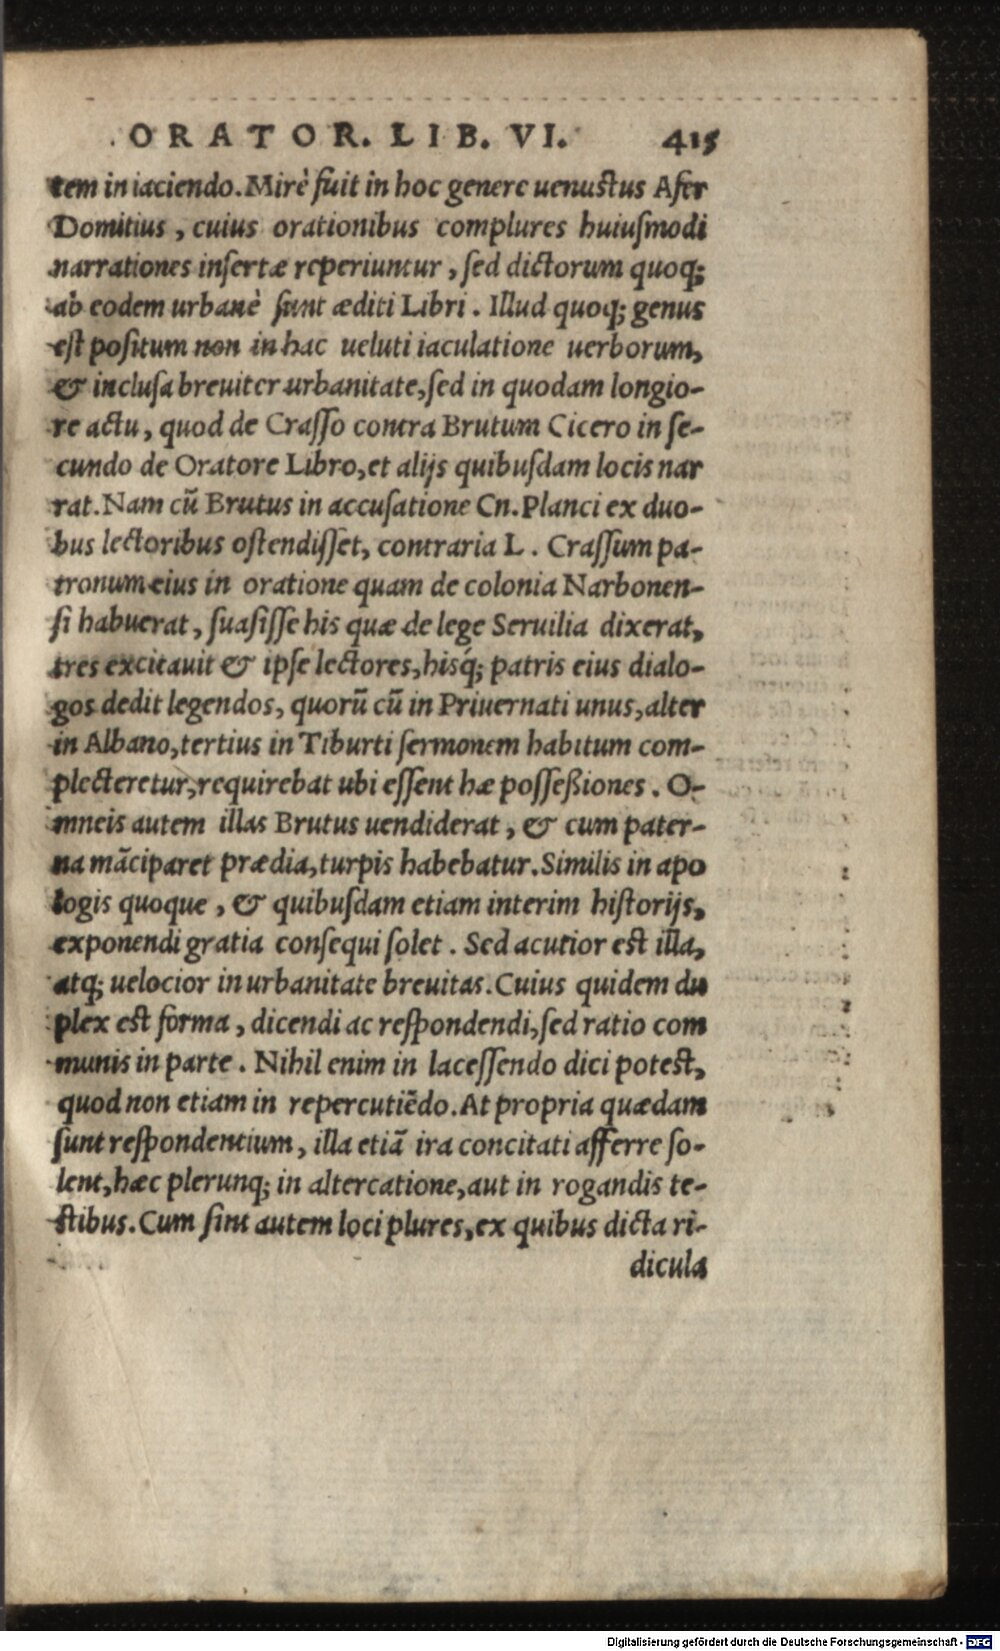 ORATOR. LIB. VI. 415
tem in iaciendo. Mirè fuit in hoc genere uenustus Afer
Domitius, cuius orationibus complures huiusmodi
narrationes insertæ reperiuntur, sed dictorum quoq;
ab eodem urbanè sunt æditi Libri. Illud quoq; genus
est positum non in hac ueluti iaculatione uerborum,
& inclusa breuiter urbanitate, sed in quodam longio-
re actu, quod de Crasso contra Brutum Cicero in se-
cundo de Oratore Libro, et alijs quibusdam locis nar
rat. Nam cũ Brutus in accusatione Cn. Planci ex duo-
bus lectoribus ostendisset, contraria L. Crassum pa-
tronum eius in oratione quam de colonia Narbonen-
si habuerat, suasisse his quæ de lege Seruilia dixerat,
tres excitauit & ipse lectores, hisq́; patris eius dialo-
gos dedit legendos, quorũ cũ in Priuernati unus, alter
in Albano, tertius in Tiburti sermonem habitum com-
plecteretur, requirebat ubi essent hæ posseßiones. O-
mneis autem illas Brutus uendiderat, & cum pater-
na mãciparet prædia, turpis habebatur. Similis in apo
logis quoque, & quibusdam etiam interim historijs,
exponendi gratia consequi solet. Sed acutior est illa,
atq; uelocior in urbanitate breuitas. Cuius quidem du
plex est forma, dicendi ac respondendi, sed ratio com
munis in parte. Nihil enim in lacessendo dici potest,
quod non etiam in repercutiẽdo. At propria quædam
sunt respondentium, illa etiã ira concitati afferre so-
lent, hæc plerunq; in altercatione, aut in rogandis te-
stibus. Cum sint autem loci plures, ex quibus dicta ri-
dicula
Digitalisierung gefördert durch die Deutsche Forschungsgemeinschaft - DFG